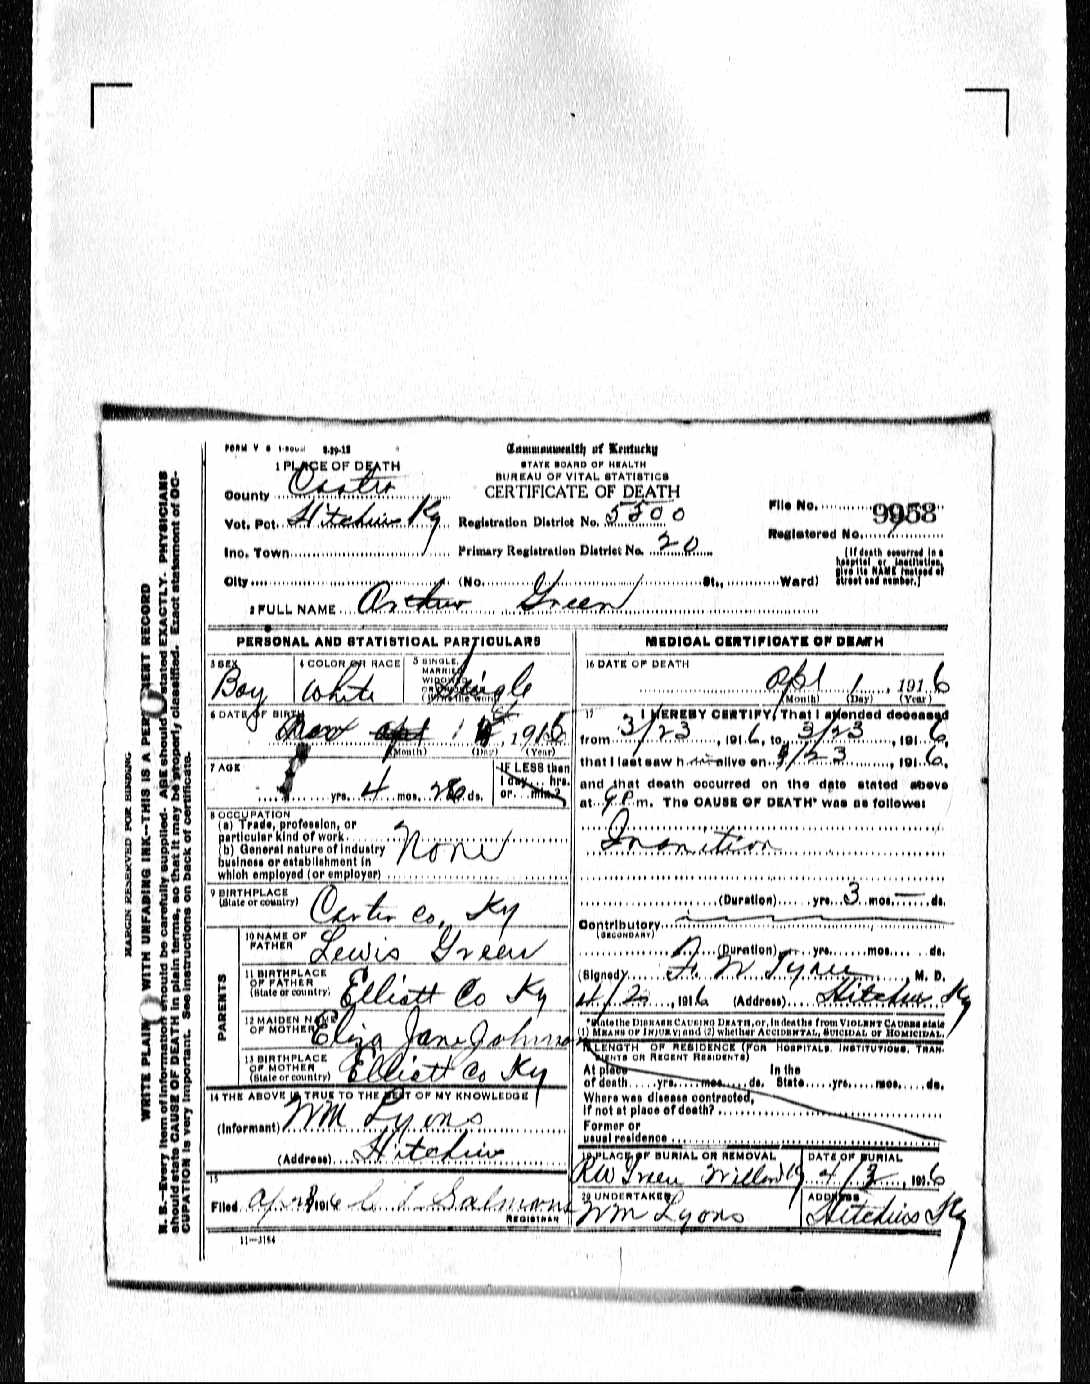 FORM V S 8-29-12
Commonwealth of Kentucky
STATE BOARD OF HEALTH
BUREAU OF VITAL STATISTICS
CERTIFICATE OF DEATH
1 PLACE OF DEATH
County Carter
Vot. Pct. Hitchins Ky
Inc. Town
City (No. St., Ward)
Registration District No. 5500
Primary Registration District No. 20
File No. 9958
Registered No.
[If death occurred in a
hospital or institution,
give its NAME instead of
street and number.]
2 FULL NAME Arthur Green
PERSONAL AND STATISTICAL PARTICULARS
3 SEX
Boy
4 COLOR OR RACE
White
5 SINGLE,
MARRIED
WIDOWED
Single
6 DATE OF BIRTH
1915
(Month) (Day) (Year)
7 AGE
yrs. 4 mos. ds.
IF LESS than
1 day, hrs.
or min.?
8 OCCUPATION
(a) Trade, profession, or
particular kind of work
(b) General nature of industry
business or establishment in
which employed (or employer)
None
9 BIRTHPLACE
(State or country)
Carter Co, Ky
PARENTS
10 NAME OF
FATHER
Lewis Green
11 BIRTHPLACE
OF FATHER
(State or country)
Elliott Co Ky
12 MAIDEN NAME
OF MOTHER
Eliza Jane Johnson
13 BIRTHPLACE
OF MOTHER
(State or country)
Elliott Co Ky
14 THE ABOVE IS TRUE TO THE BEST OF MY KNOWLEDGE
(Informant) WM Lyons
(Address) Hitchins
15
Filed Apr 1916 Salmons
REGISTRAR
11-3184
MEDICAL CERTIFICATE OF DEATH
16 DATE OF DEATH
Apl 1, 1916
(Month) (Day) (Year)
17 I HEREBY CERTIFY, That I attended deceased
from 3/23, 1916, to 3/23, 1916,
that I last saw him alive on 3/23, 1916,
and that death occurred on the date stated above
at 9 P m. The CAUSE OF DEATH* was as follows:
Inanition
(Duration) yrs. 3 mos. ds.
Contributory
(SECONDARY)
(Duration) yrs. mos. ds.
(Signed) W , M. D.
4/20, 1916 (Address) Hitchins Ky
*State the DISEASE CAUSING DEATH, or, in deaths from VIOLENT CAUSES state
(1) MEANS OF INJURY; and (2) whether ACCIDENTAL, SUICIDAL OF HOMICIDAL.
18 LENGTH OF RESIDENCE (FOR HOSPITALS, INSTITUTIONS, TRAN-
SIENTS OR RECENT RESIDENTS)
At place In the
of death yrs. mos. ds. State yrs. mos. ds.
Where was disease contracted,
if not at place of death?
Former or
usual residence
19 PLACE OF BURIAL OR REMOVAL
RW Green Willard Ky
DATE OF BURIAL
4/3, 1916
20 UNDERTAKER
WM Lyons
ADDRESS
Hitchins Ky
MARGIN RESERVED FOR BINDING
WRITE PLAINLY WITH UNFADING INK—THIS IS A PERMANENT RECORD
N. B.—Every item of information should be carefully supplied. AGE should be stated EXACTLY. PHYSICIANS
should state CAUSE OF DEATH in plain terms, so that it may be properly classified. Exact statement of OC-
CUPATION is very important. See instructions on back of certificate.